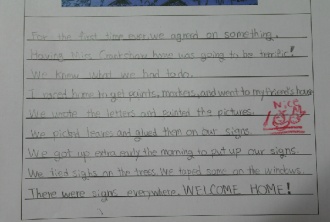 For the first time ever, we agreed on something.
Having Mrs. here was going to be terrific!
We knew what we had to do.
I raced home to get paints, markers, and went to my friend's house
We wrote the letters and painted the pictures.
Nice
We picked leaves and glued them on our signs.
We got up extra early the morning to put up our signs.
We tied signs on the trees. We taped some on the windows.
There were signs everywhere. WELCOME HOME!